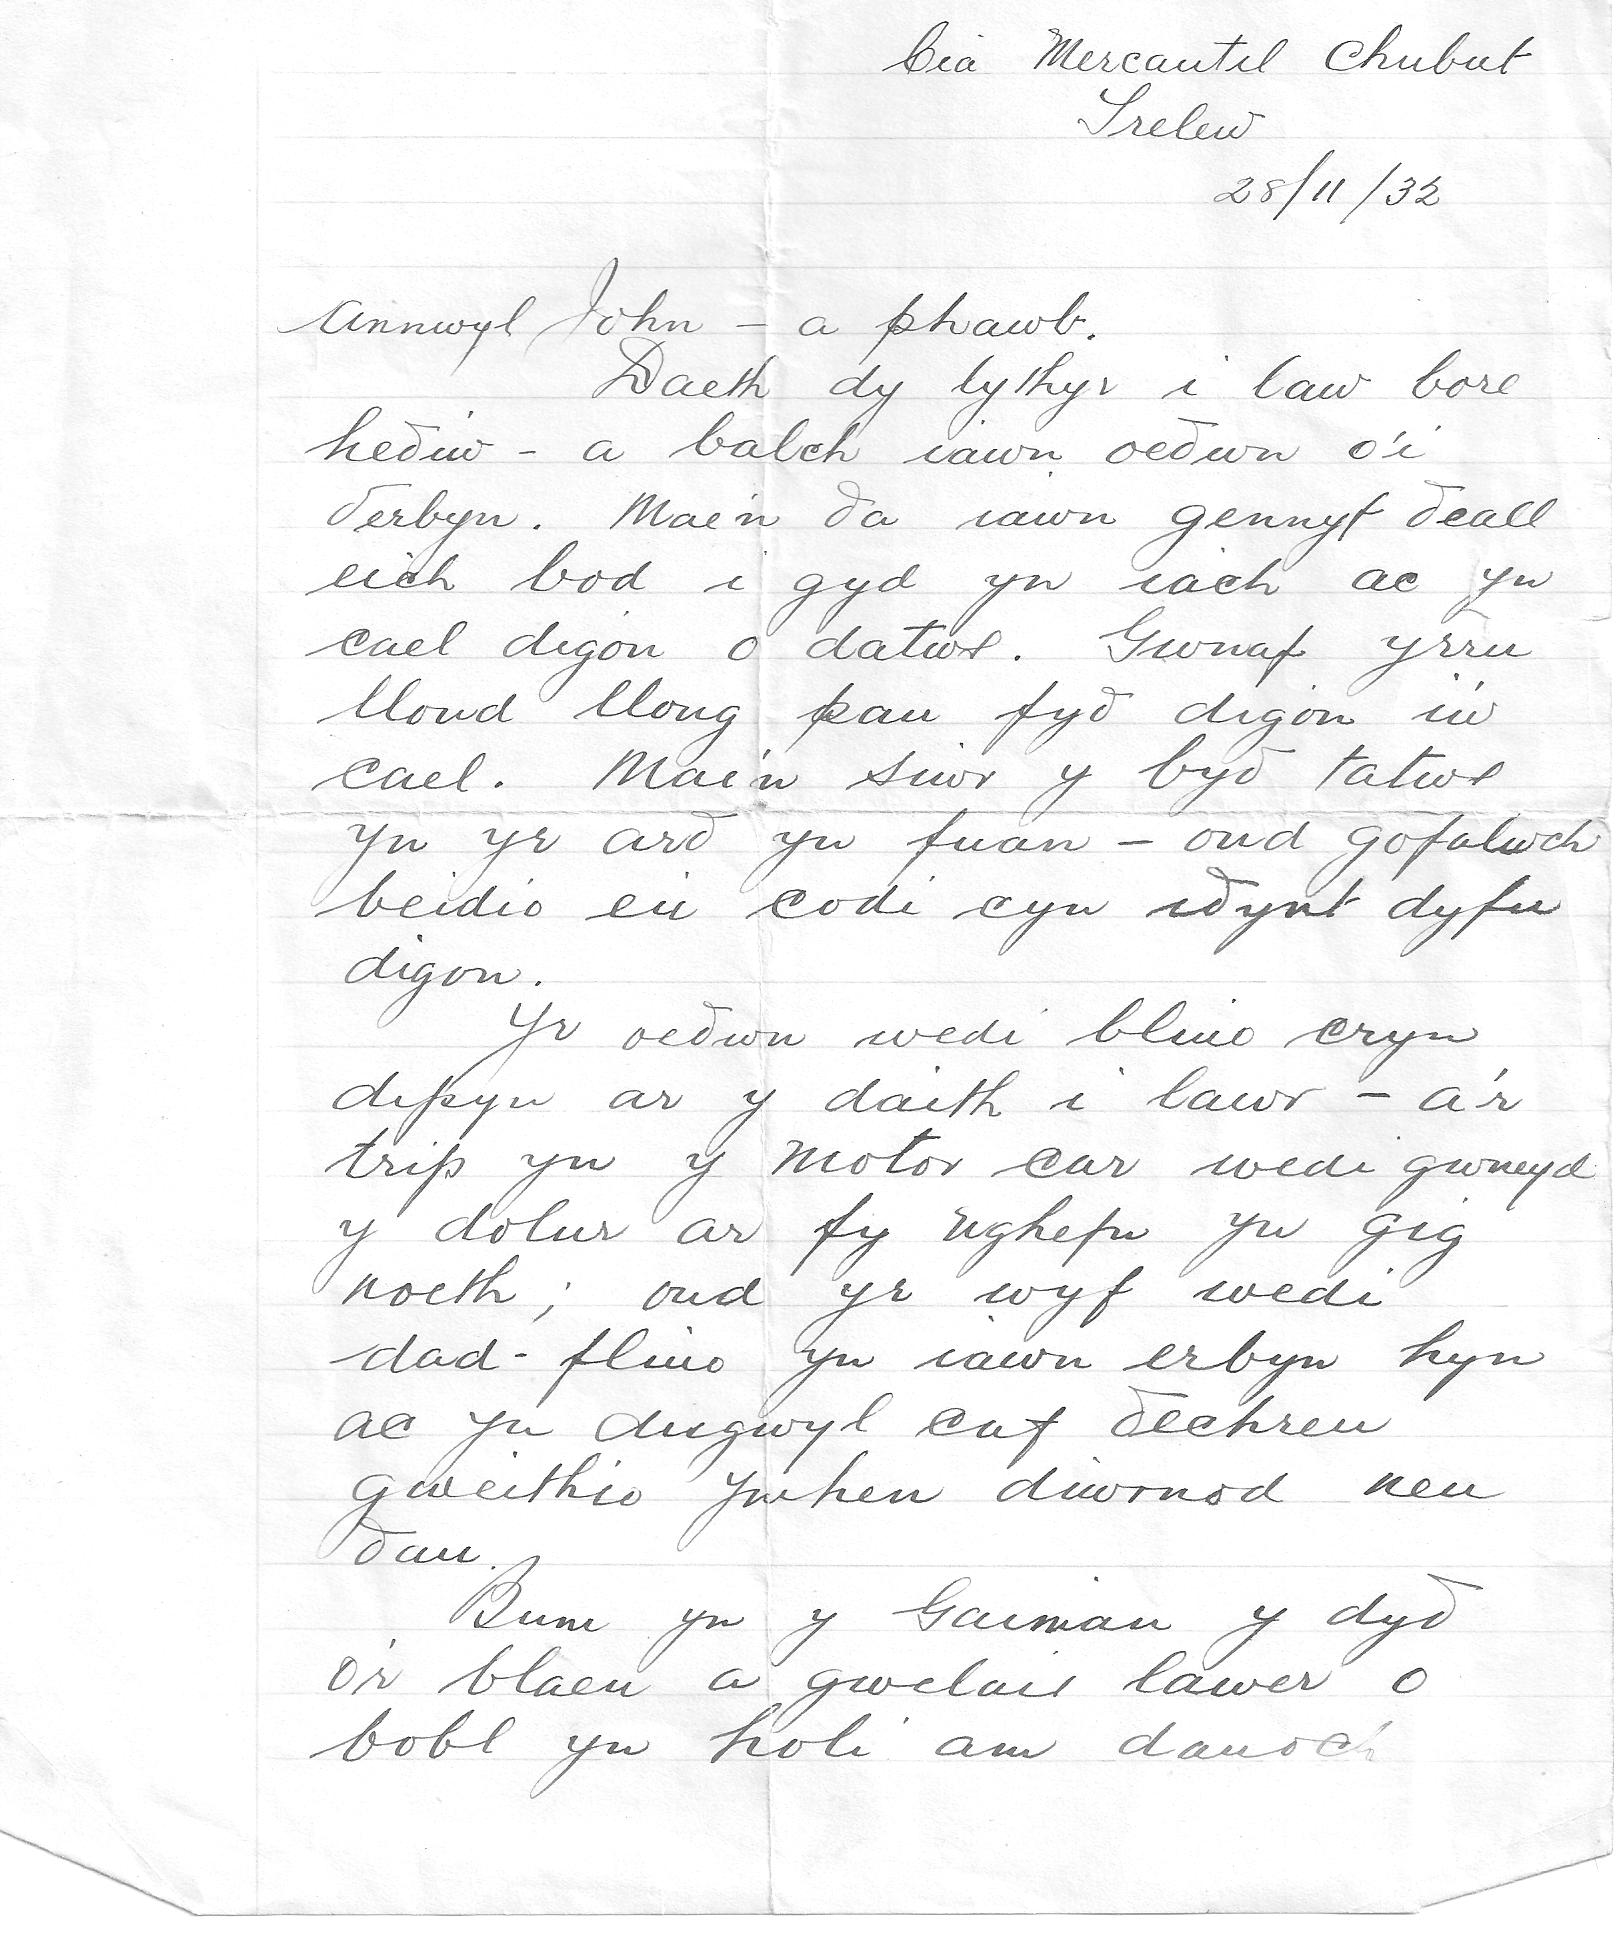 Cia Mercantil Chubut
Trelew
28/11/32
Annwyl John – a phawb.
Daeth dy lythyr i law bore
heðiw – a balch iawn oeðwn o'i
ðerbyn. Mae'n ða iawn gennyf ðeall
eich bod i gyd yn iach ac yn
cael digon o datws. Gwnaf yrru
llond llong pan fyð digon i'w
cael. Mae'n siwr y byð tatws
yn yr arð yn fuan – ond gofalwch
beidio eu codi cyn iðynt dyfu
digon.
Yr oeðwn wedi blino cryn
dipyn ar y daith i lawr – a'r
trip yn y motor car wedi gwneyd
y dolur ar fy nghefn yn gig
noeth; ond yr wyf wedi
dad-flino yn iawn erbyn hyn
ac yn disgwyl caf ðechreu
gweithio ymhen diwrnod neu
ðau.
Bum yn y Gaiman y dyð
o'r blaen a gwelais lawer o
bobl yn holi am danoch